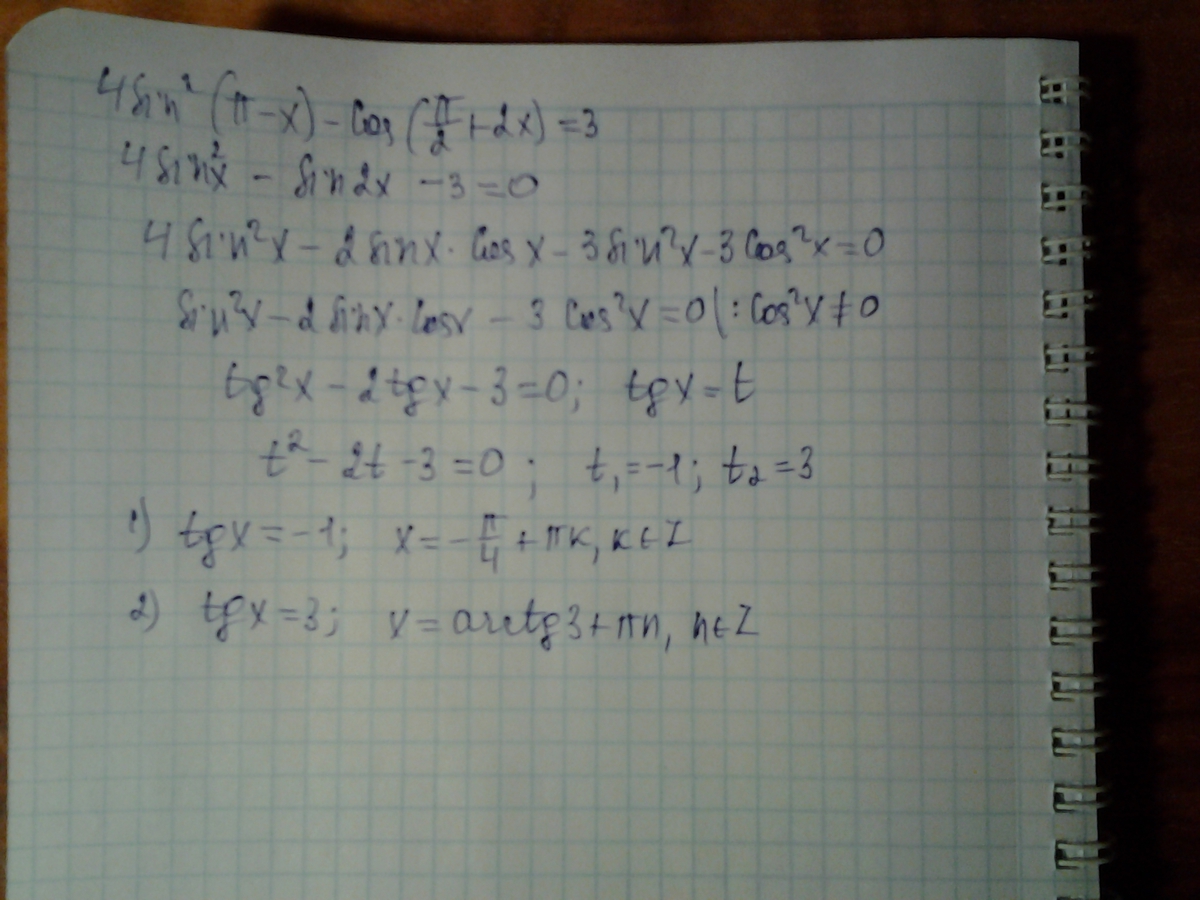 4 sin² (π - x) - cos (π/2 + 2x) = 3
4 sin²x - sin 2x - 3 = 0
4 sin²x - 2 sinx · cos x - 3 sin²x - 3 cos²x = 0
sin²x - 2 sinx · cosx - 3 cos²x = 0 | : cos²x ≠ 0
tg²x - 2 tgx - 3 = 0; tgx = t
t² - 2t - 3 = 0 ; t₁ = -1; t₂ = 3
1) tgx = -1; x = -π/4 + πk, k ∈ Z
2) tgx = 3; x = arctg3 + πn, n ∈ Z